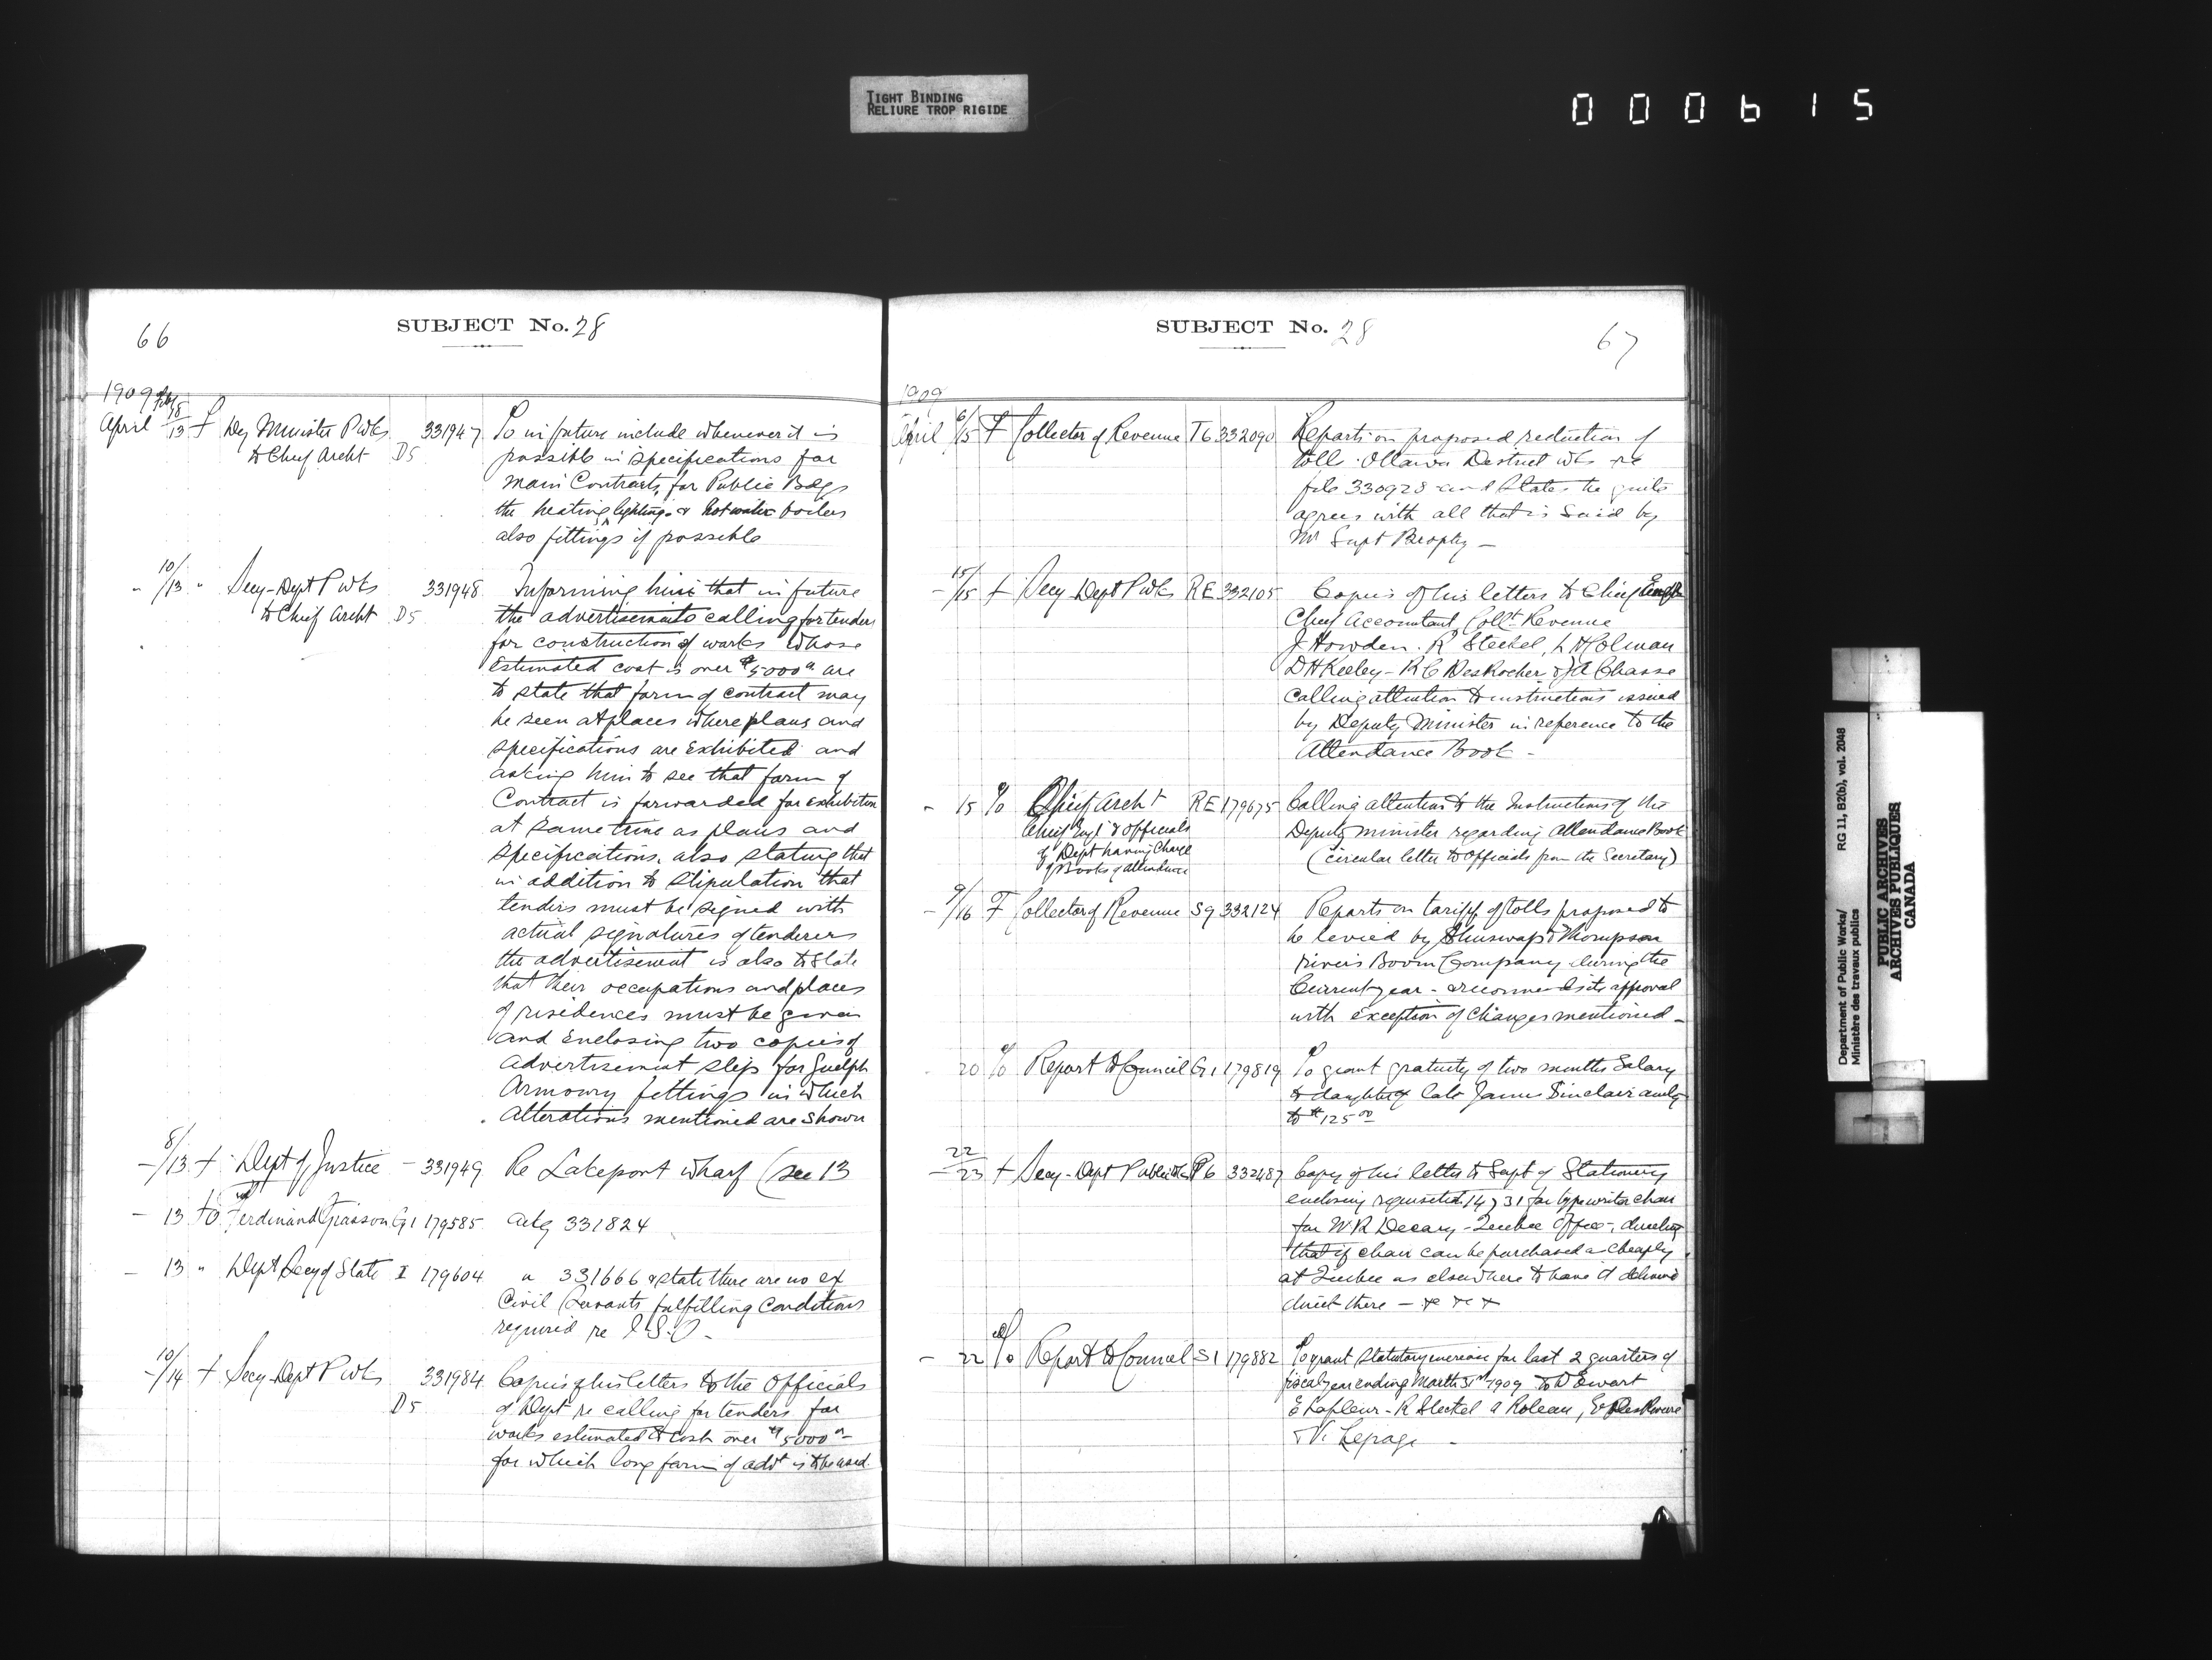 TIGHT BINDING
RELIURE TROP RIGIDE
000615
66
SUBJECT No. 28
1909
April 13 f Dy Minister P Wks 331947 To in future include whenever it is
to Chief Archt D5 possible in specifications for
main Contracts, for Public Bdgs
the heating lighting & hot water boilers
also fittings if possible
" 10/13 " Secy-Dept P Wks 331948 Informing him that in future
to Chief Archt D5 the advertisements calling for tenders
for construction of works whose
estimated cost is over $5000 are
to state that form of contract may
be seen at places where plans and
specifications are exhibited and
asking him to see that form of
Contract is forwarded for exhibition
at same time as plans and
specifications, also stating that
in addition to stipulation that
tenders must be signed with
actual signatures of tenderers
the advertisement is also to state
that their occupations and places
of residences must be given
and enclosing two copies of
advertisement slip for Guelph
Armoury fittings in which
alterations mentioned are shown
- 8/13 f Dept of Justice - 331949 Re Lakeport wharf (see 13
- 13 to Ferdinand G1 179585 ackg 331824
- 13 " Dept Secy of State I 179604 " 331666 & state there are no of
Civil Servants fulfilling conditions
required re I.S.O -
- 10/14 f Secy-Dept P Wks 331984 Copies of his letters to the Officials
D5 of Dept re calling for tenders for
works estimated to cost over $5000
for which long form of advt is to be used.
SUBJECT No. 28
67
1909
April 6/15 F Collector of Revenue T6 332090 Reports on proposed reduction of
tolls Ottawa District Wks re
file 330928 and states he quite
agrees with all that is said by
Mr Supt Brophy -
- 15/15 f Secy Dept P Wks RE 332105 Copies of his letters to Chief Engr
Chief Accountant, Collt Revenue
J Howden. R Steckel, L H Colman
D H Keeley - R C DesRocher & J A Chasse
Calling attention to instructions issued
by Deputy Minister in reference to the
Attendance Book -
- 15 % Chief Archt RE 179675 Calling attention to the Instructions of the
Chief Engr & Officials Deputy Minister regarding Attendance Book
of Dept having Charge (circular letter to Officials from the Secretary)
of Books of attendance
- 9/16 F Collector of Revenue S9 332124 Reports on tariff of tolls proposed to
be levied by Shuswap & Thompson
rivers Boom Company during the
Current year - & recommends its approval
with exception of changes mentioned -
20 % Report to Council G1 179819 To grant gratuity of two months salary
to daughter of late James Sinclair
to $125 00
- 22/23 f Secy-Dept Public Wks P6 332487 Copy of his letter to Supt of Stationery
enclosing requisition 14731 for typewriter chair
for W.R Decary - Quebec Office - directing
that if chair can be purchased as cheaply
at Quebec as elsewhere to have it delivered
direct there - x x x
- 22 % Report to Council S1 179882 To grant statutory increase for last 2 quarters of
fiscal year ending March 31st 1909 to D Ewart
E Lafleur - R Steckel A Roleau,
& V. Lepage -
Department of Public Works/ RG 11, B2(b), vol. 2048
Ministère des travaux publics
PUBLIC ARCHIVES
ARCHIVES PUBLIQUES
CANADA